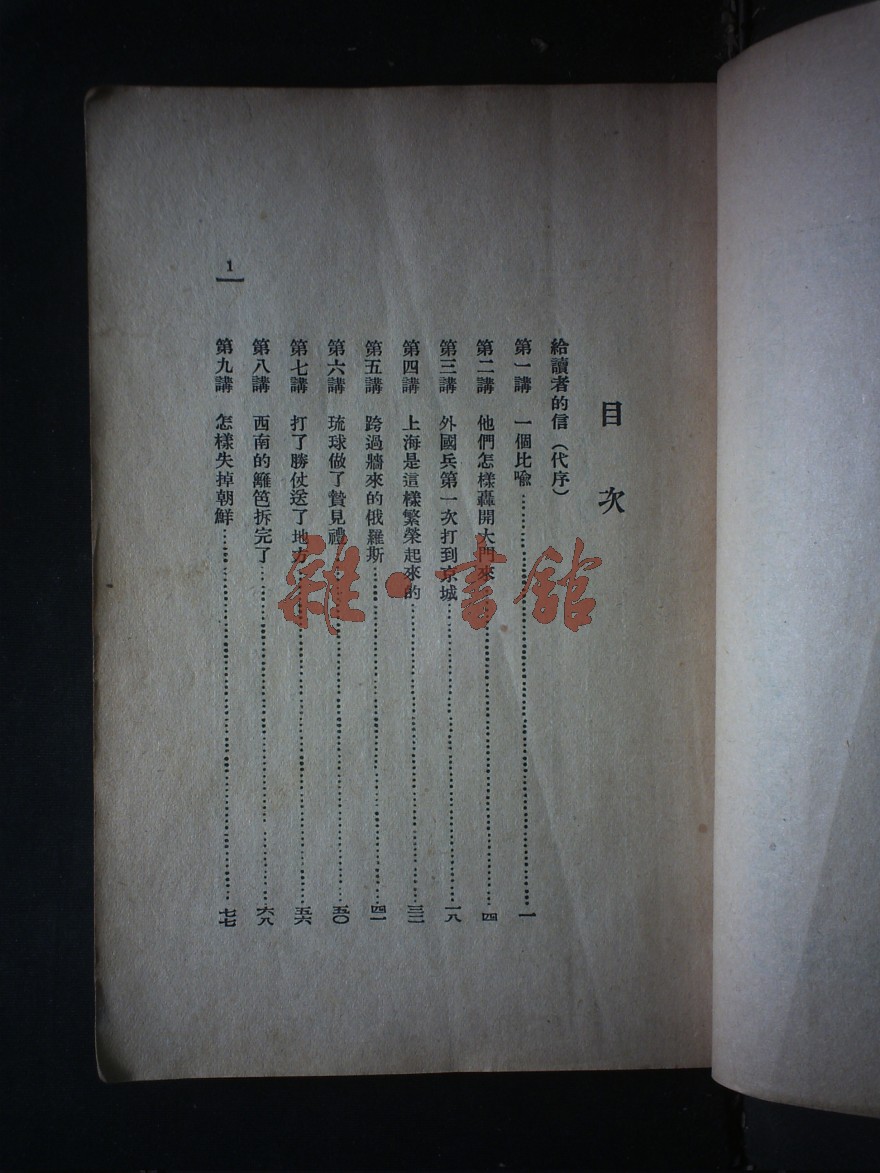 目次
給讀者的信（代序）
第一講　一個比喻……一
第二講　他們怎樣轟開大門來……四
第三講　外國兵第一次打到京城……一八
第四講　上海是這樣繁榮起來的……三二
第五講　跨過牆來的俄羅斯……四一
第六講　琉球做了贄見禮……五〇
第七講　打了勝仗送了地方……五六
第八講　西南的籬笆拆完了……六八
第九講　怎樣失掉朝鮮……七七
1
雜·書館